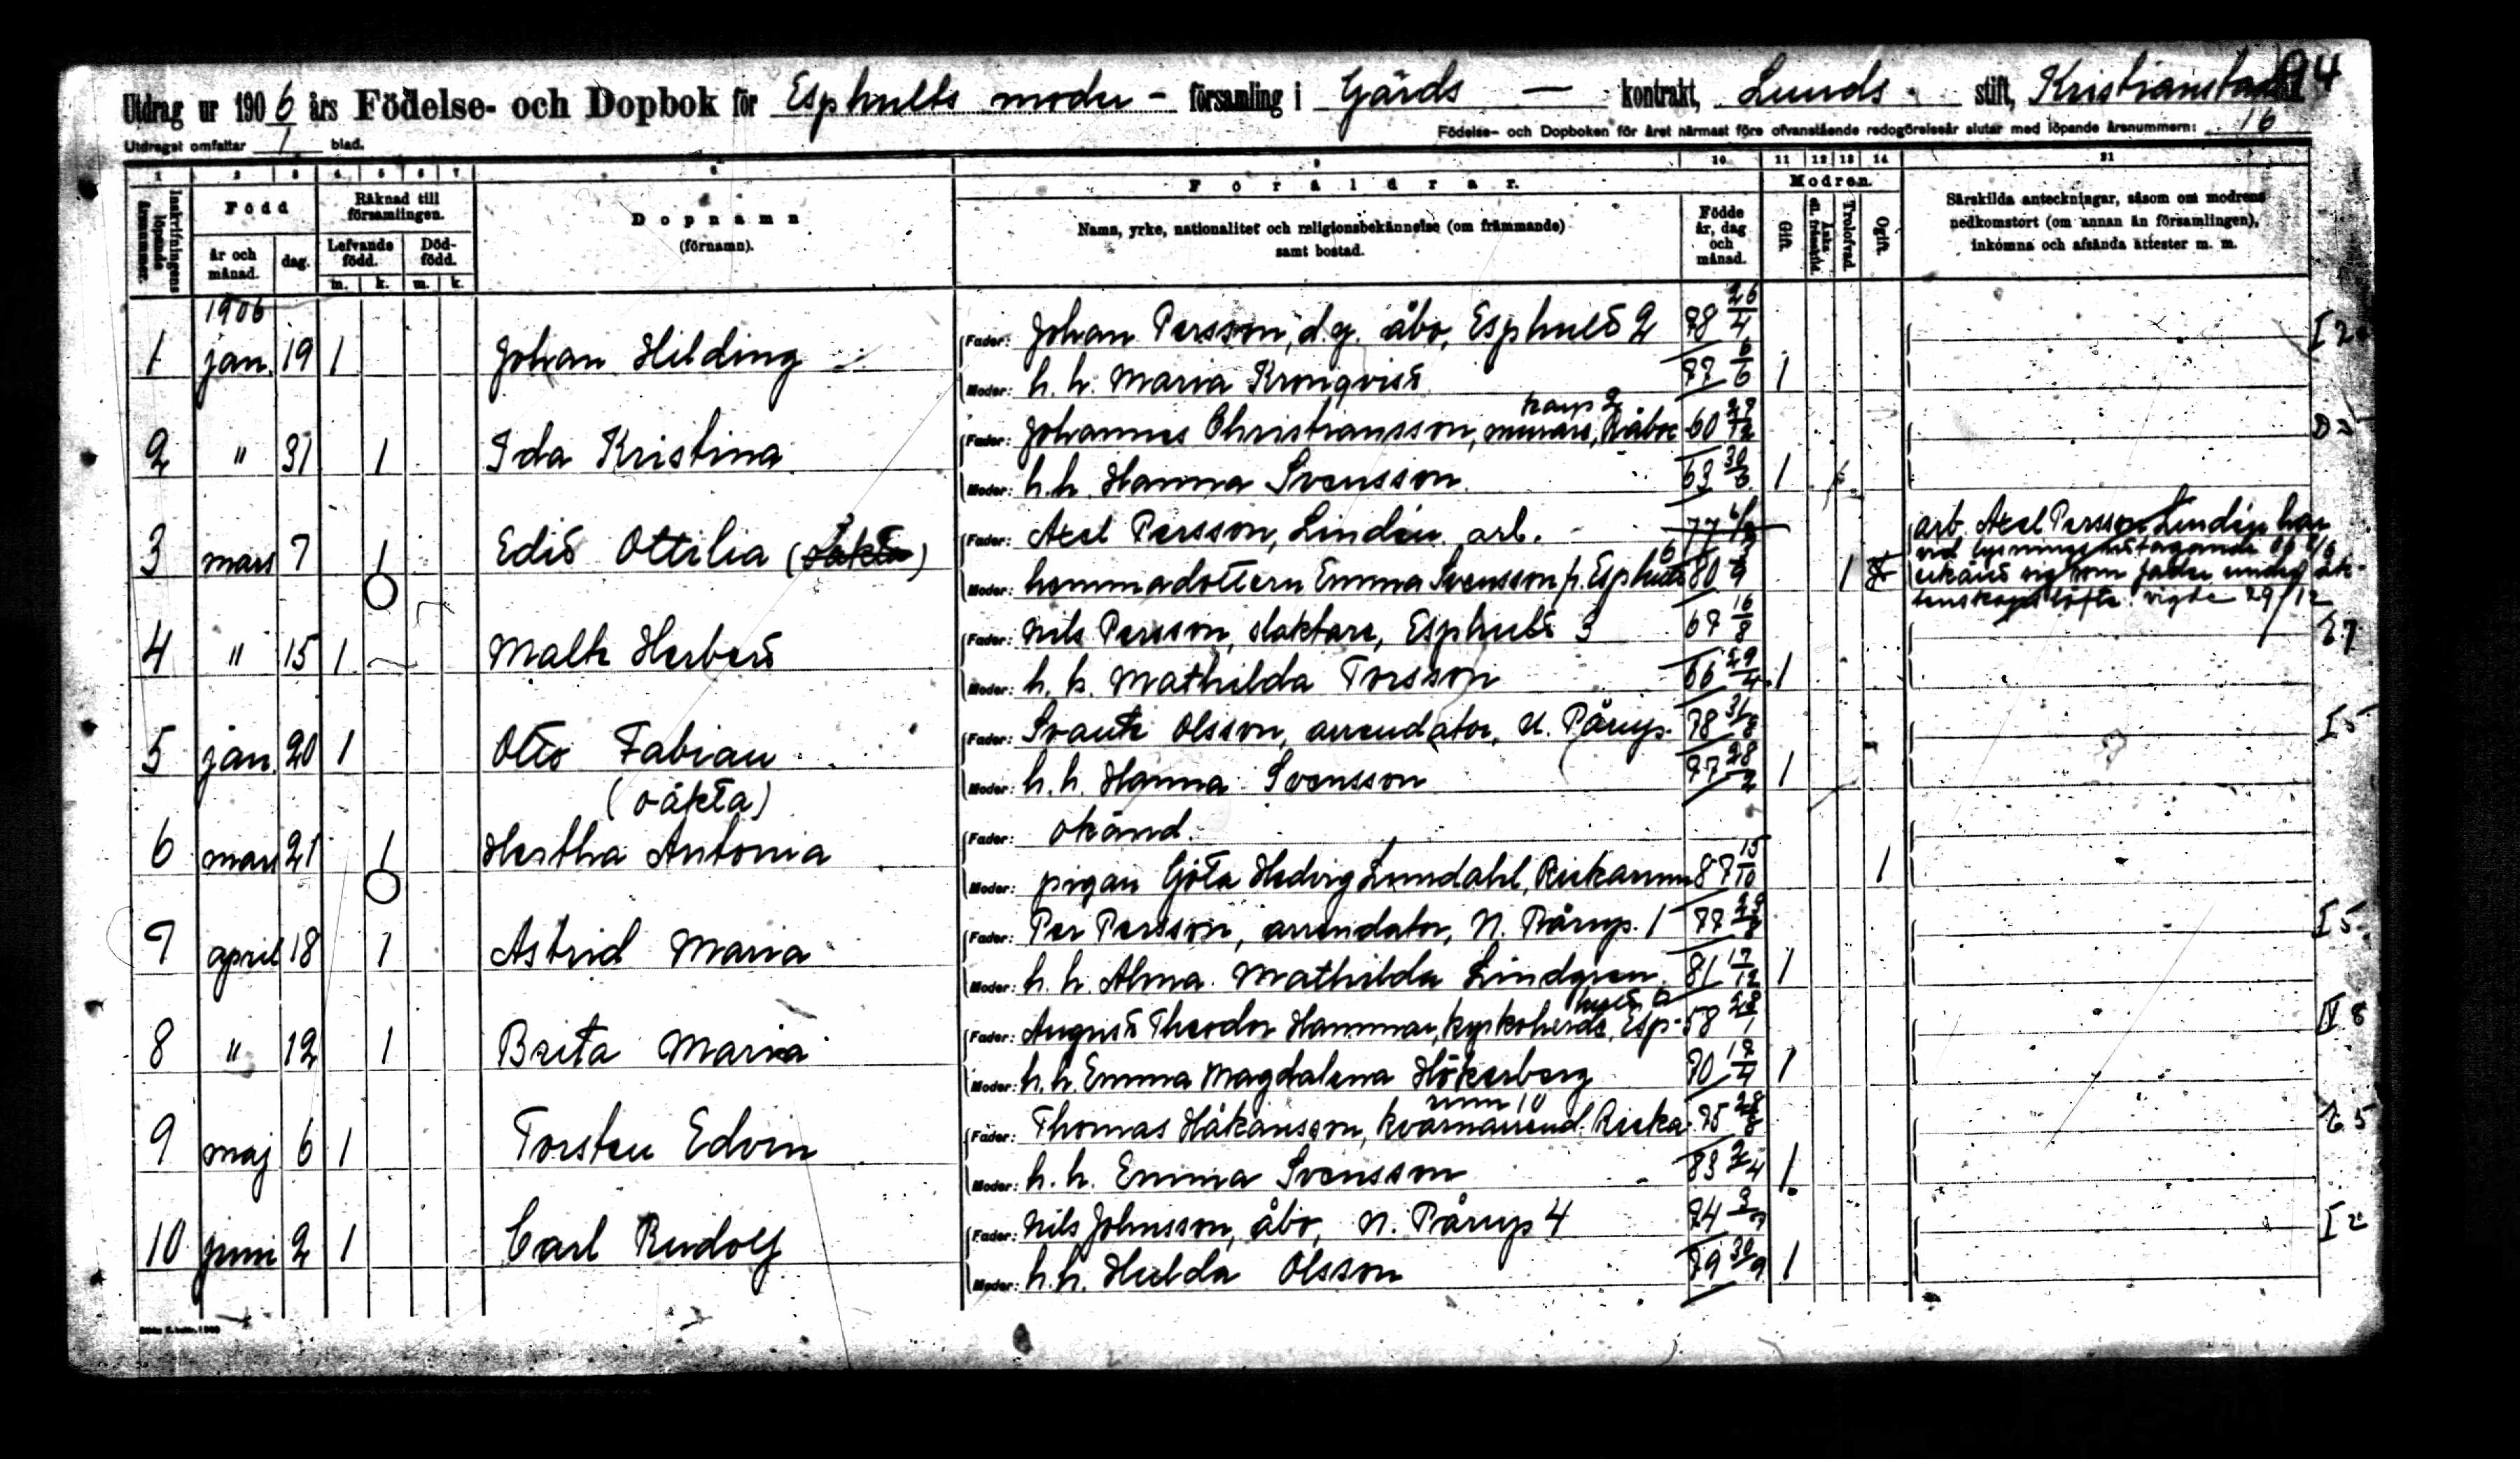 Utdrag ur 1906 års Födelse- och Dopbok för Esphults moder - församling i Gärds — kontrakt, Lunds stift, Kristianstads
94
Utdraget omfattar 1 blad.
Födelse- och Dopboken för året närmast före ofvanstående redogörelseår slutar med löpande årsnummern: 16
1 2 3 4 5 6 7 8 9 10 11 12 13 14 21
Inskrifningens löpande årsnummer.
Född
år och månad.
dag.
Räknad till församlingen.
Lefvande född.
Död-född.
m. k. m. k.
Dopnamn
(förnamn).
Föräldrar.
Namn, yrke, nationalitet och religionsbekännelse (om främmande)
samt bostad.
Födde år, dag och månad.
Modren.
Gift.
Trolofvad.
Ogift.
Särskilda anteckningar, såsom om modrens
nedkomstort (om annan än församlingen),
inkomna och afsända attester m. m.
1906
1 jan. 19 1 Johan Hilding
Fader: Johan Persson, d.y. åbo, Esphult 2 78 26/4
Moder: h. h. Maria Kronqvist 77 6/6 1
2 " 31 1 Ida Kristina
Fader: Johannes Christiansson, murare, 60 29/12
Moder: h. h. Hanna Svensson 63 30/6 1
3 mars 7 1 Edit Ottilia (oäkta)
Fader: Axel Persson, Lindén arb.
Moder: hemmadottern Emma Svensson fr. Esphult 6 80 1
arb. Axel Persson Lindén har
vid lysnings uttagande
erkänt sig som fader under äk-
tenskapslöfte. vigde 29/12
4 " 15 1 Malte Herbert
Fader: Nils Persson, slaktare, Esphult 3 67 16/8
Moder: h. h. Mathilda Torsson 66 29/4 1
E7
5 jan. 20 1 Otto Fabian
Fader: Svante Olsson, arrendator, N. Pårup. 78 31/8
Moder: h. h. Hanna Svensson 77 28/2 1
I5
(oäkta)
6 mars 21 1 Hertha Antonia
Fader: okänd.
Moder: pigan Göta Hedvig Lundahl, Rickarum 87 15/10 1
7 april 18 1 Astrid Maria
Fader: Per Persson, arrendator, N. Pårup. 1 77
Moder: h. h. Alma Mathilda Lindgren. 81 17/12 1
I5
8 " 12 1 Brita Maria
Fader: August Theodor Hammar, kyrkoherde, Esp- 58 28/1
Moder: h. h. Emma Magdalena Hökerberg 70 17/4 1
9 maj 6 1 Torsten Edvin
rum 10
Fader: Thomas Håkansson, kvarnarrend. Ricka 75 28/8
Moder: h. h. Emma Svensson 83 1
10 juni 2 1 Carl Rudolf
Fader: Nils Johnsson, åbo, N. Pårup 4 74
Moder: h. h. Hulda Olsson 79 30/9 1
I2